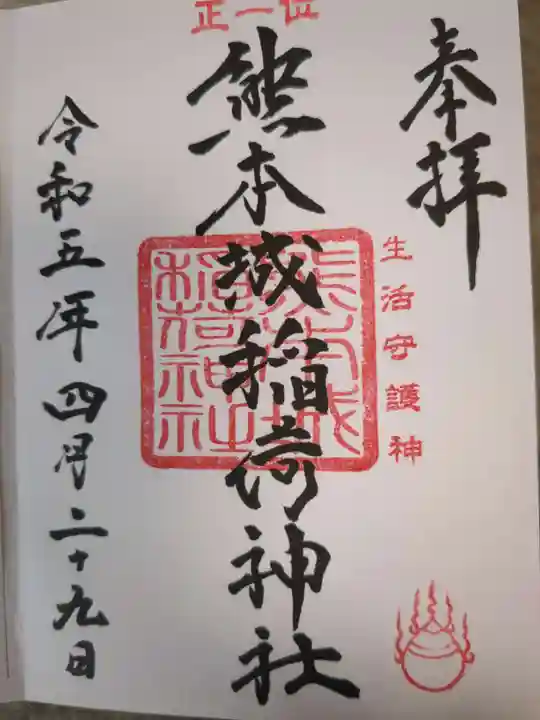 奉拝
生活守護神
正一位
熊本城稲荷神社
熊本城
稲荷神社
令和五年四月二十九日